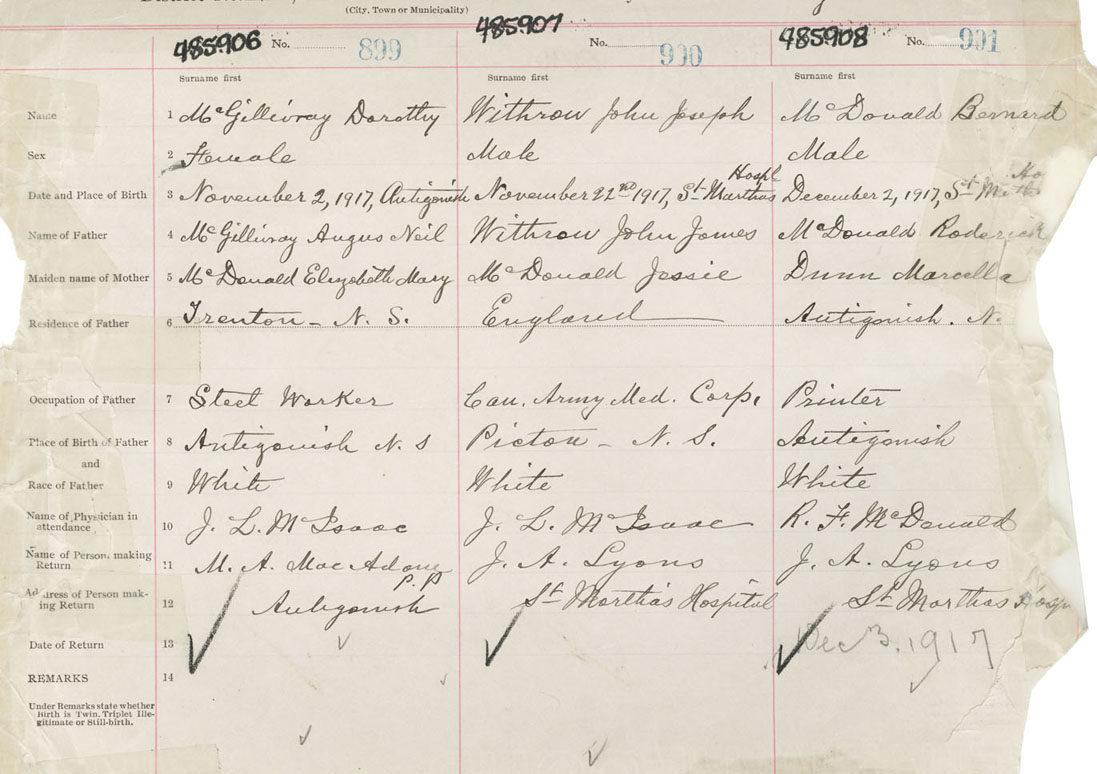 (City, Town or Municipality)
485906 No. 899 485907 No. 900 485908 No. 901
Surname first Surname first Surname first
Name 1 McGillivray Dorothy Withrow John Joseph McDonald Bernard
Sex 2 Female Male Male
Hospl
Date and Place of Birth 3 November 2, 1917, Antigonish November 22nd 1917, St. Marthas December 2, 1917, St.
Name of Father 4 McGillivray Angus Neil Withrow John James McDonald Roderick
Maiden name of Mother 5 McDonald Elizabeth Mary McDonald Jessie Dunn Marcella
Residence of Father 6 Trenton - N. S. England Antigonish. N.
Occupation of Father 7 Steel Worker Can. Army Med. Corp. Printer
Place of Birth of Father 8 Antigonish N. S Pictou - N. S. Antigonish
and
Race of Father 9 White White White
Name of Physician in
attendance 10 J. L. McIsaac J. L. McIsaac R. F. McDonald
Name of Person making
Return 11 M. A. J. A. Lyons J. A. Lyons
P.P
Address of Person mak-
ing Return 12 Antigonish St. Martha's Hospital St. Marthas Hosp
Date of Return 13 Dec 3. 1917
REMARKS 14
Under Remarks state whether
Birth is Twin, Triplet Ille-
gitimate or Still-birth.